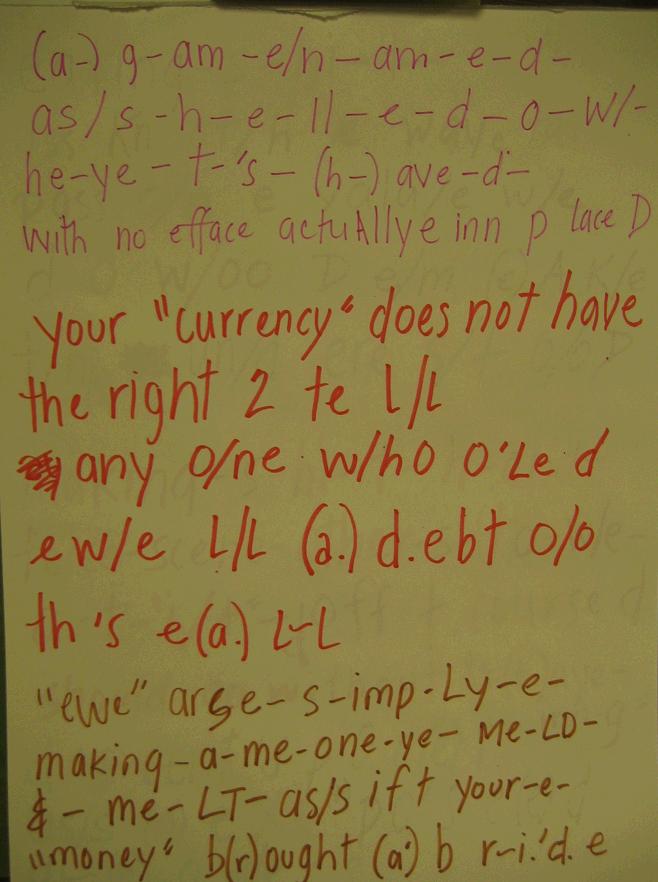 (a-) g-am-e/n-am-e-d-
as/s-h-e-ll-e-d-o-w/-
he-ye-t-'s-(h-)ave-d-
with no efface actuAllye inn p lace D
your "currency" does not have
the right 2 te l/L
any o/ne w/hO O'Le d
ew/e L/L (a.) d.ebt o/o
th's e(a.) L-L
"ewe" arse-s-imp-Ly-e-
making-a-me-one-ye-Me-LD-
&-me-LT-as/s ift your-e-
"money" b(r)ought (a') b r-i.'d.e